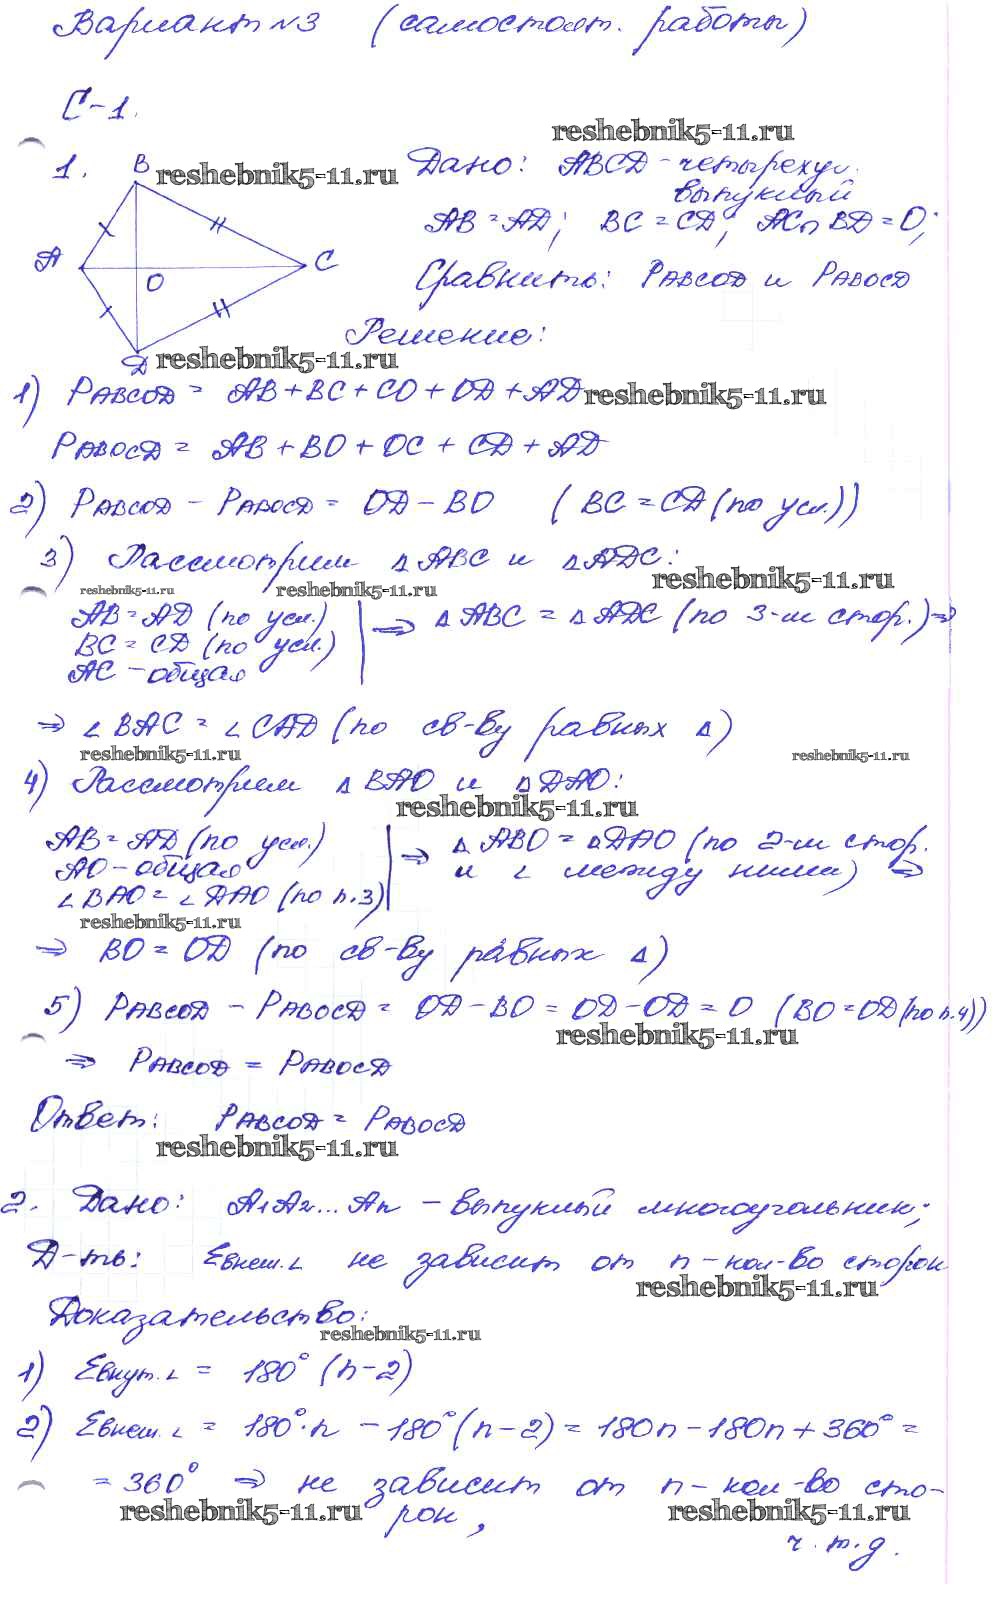 Вариант №3 (самостоят. работы)
С-1.
reshebnik5-11.ru
1.
B
reshebnik5-11.ru
A
O
C
Д
reshebnik5-11.ru
Дано: ABCD - четырехуг.
выпуклый
AB = AD; BC = CD; AC∩BD = O;
Сравнить: PABCOD и PABOCD
Решение:
1) PABCOD = AB + BC + CO + OD + AD
reshebnik5-11.ru
PABOCD = AB + BO + OC + CD + AD
2) PABCOD - PABOCD = OD - BO (BC = CD (по усл.))
3) Рассмотрим △ABC и △ADC:
reshebnik5-11.ru
reshebnik5-11.ru
reshebnik5-11.ru
AB = AD (по усл.)
BC = CD (по усл.)
AC - общая
⇒ △ABC = △ADC (по 3-м стор.) ⇒
⇒ ∠BAC = ∠CAD (по св-ву равных △)
reshebnik5-11.ru
reshebnik5-11.ru
4) Рассмотрим △BAO и △DAO:
reshebnik5-11.ru
AB = AD (по усл.)
AO - общая
∠BAO = ∠DAO (по п.3)
⇒ △ABO = △DAO (по 2-м стор.
и ∠ между ними) ⇒
reshebnik5-11.ru
⇒ BO = OD (по св-ву равных △)
5) PABCOD - PABOCD = OD - BO = OD - OD = 0 (BO = OD (по п.4))
reshebnik5-11.ru
⇒ PABCOD = PABOCD
Ответ: PABCOD = PABOCD
reshebnik5-11.ru
2. Дано: A1A2...An - выпуклый многоугольник;
Д-ть: Σвнеш.∠ не зависит от n - кол-во сторон
reshebnik5-11.ru
Доказательство:
reshebnik5-11.ru
1) Σвнут.∠ = 180° (n - 2)
2) Σвнеш.∠ = 180°·n - 180° (n - 2) = 180n - 180n + 360° =
= 360° ⇒ не зависит от n - кол-во сто-
reshebnik5-11.ru
reshebnik5-11.ru
рон,
ч.т.д.